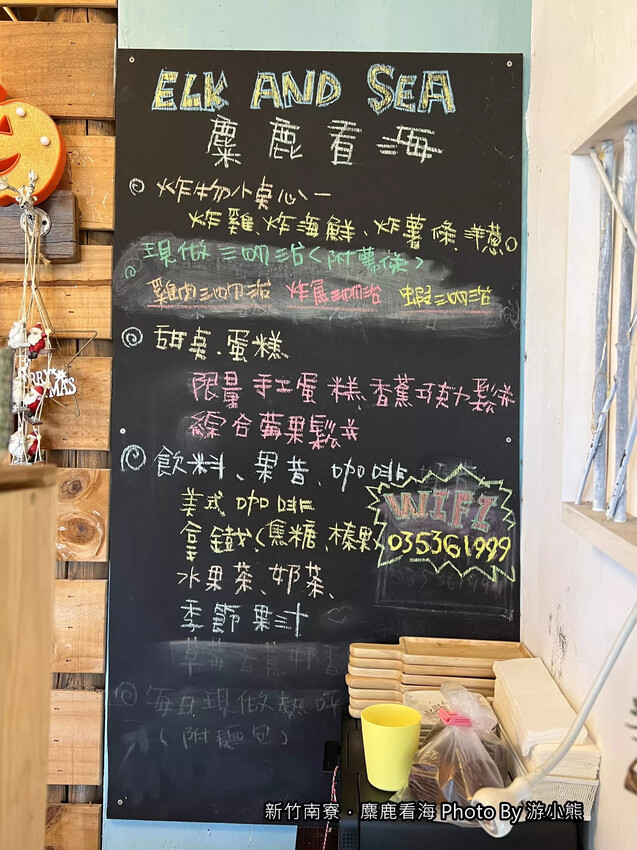 ELK AND SEA
麋鹿看海
炸物小桌心一
炸雞、炸海鮮、炸薯條、洋蔥。
現做三明治(附薯條)
雞肉三明治 炸魚三明治 蝦三明治
甜桌.蛋糕
限量手工蛋糕、香蕉巧克力鬆餅
綜合莓果鬆餅
飲料、果昔、咖啡
美式咖啡
拿鐵、(焦糖、榛果
WIFI
035361999
水果茶、奶茶、
季節果汁
草莓香蕉奶昔
每日現做熱
(附麵包)
MERRY XMAS
新竹南寮．麋鹿看海 Photo By 游小熊